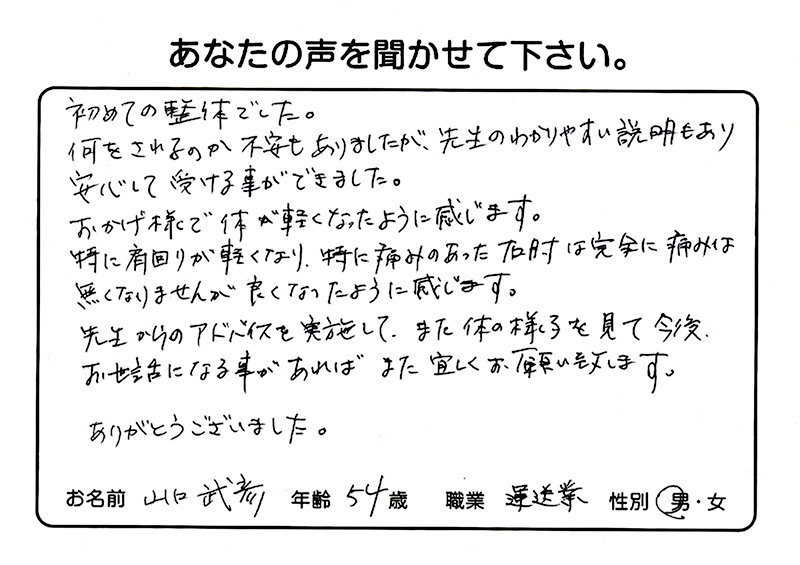 あなたの声を聞かせて下さい。
初めての整体でした。
何をされるのか不安もありましたが、先生のわかりやすい説明もあり
安心して受ける事ができました。
おかげ様で体が軽くなったように感じます。
特に肩回りが軽くなり、特に痛みのあった右肘は完全に痛みは
無くなりませんが良くなったように感じます。
先生からのアドバイスを実施して、また体の様子を見て今後、
お世話になる事があればまた宜しくお願い致します。
ありがとうございました。
お名前 山口 武彦 年齢 54歳 職業 運送業 性別 男・女